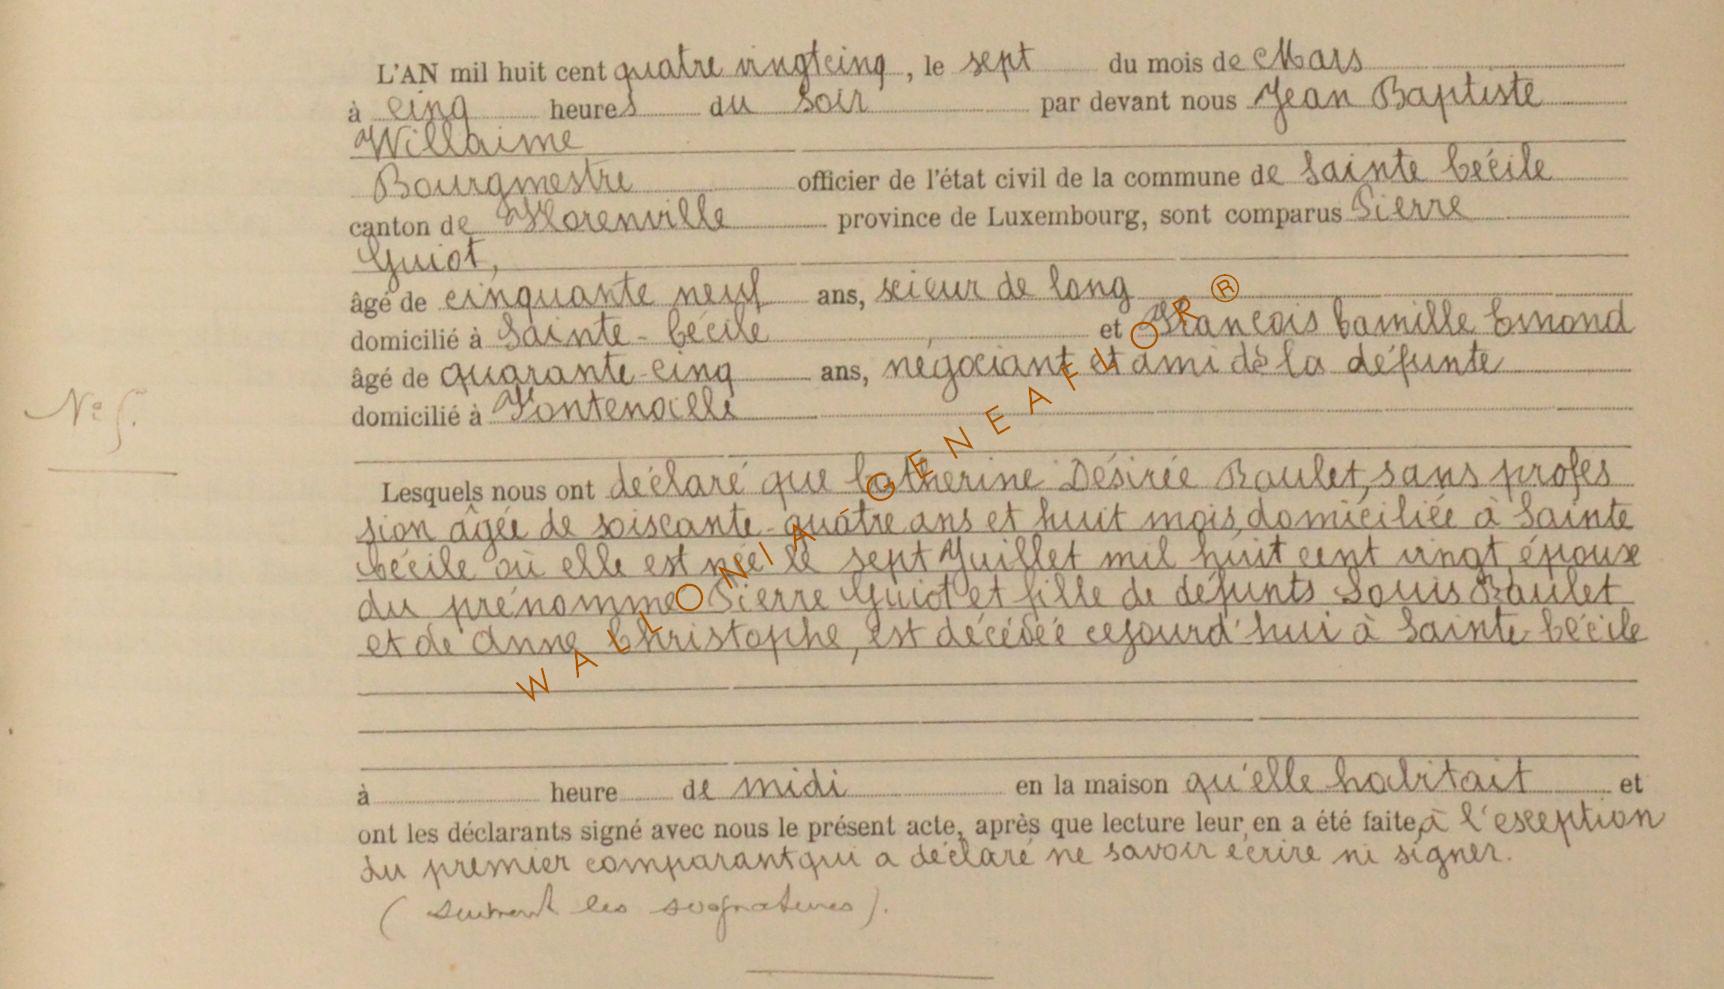 L'AN mil huit cent quatre vingt cinq, le sept du mois de Mars
à cinq heures du soir par devant nous Jean Baptiste
Willaime
Bourgmestre officier de l'état civil de la commune de Sainte Cécile
canton de Florenville province de Luxembourg, sont comparus Pierre
Guiot,
âgé de cinquante neuf ans, scieur de long
domicilié à Sainte-Cécile et François Camille Emond
âgé de quarante-cinq ans, négociant et ami de la défunte
domicilié à Fontenoille
N° 5.
Lesquels nous ont déclaré que Catherine Désirée Baulet, sans profes
sion âgée de soixante-quatre ans et huit mois, domiciliée à Sainte
Cécile où elle est née le sept Juillet mil huit cent vingt, épouse
du prénommé Pierre Guiot et fille de défunts Louis Baulet
et de Anne Christophe, est décédée cejourd'hui à Sainte-Cécile
à heure de midi en la maison qu'elle habitait et
ont les déclarants signé avec nous le présent acte, après que lecture leur en a été faite, à l'exception
du premier comparant qui a déclaré ne savoir écrire ni signer.
(suivent les signatures).
WALLONIA-GENEAFLOR®